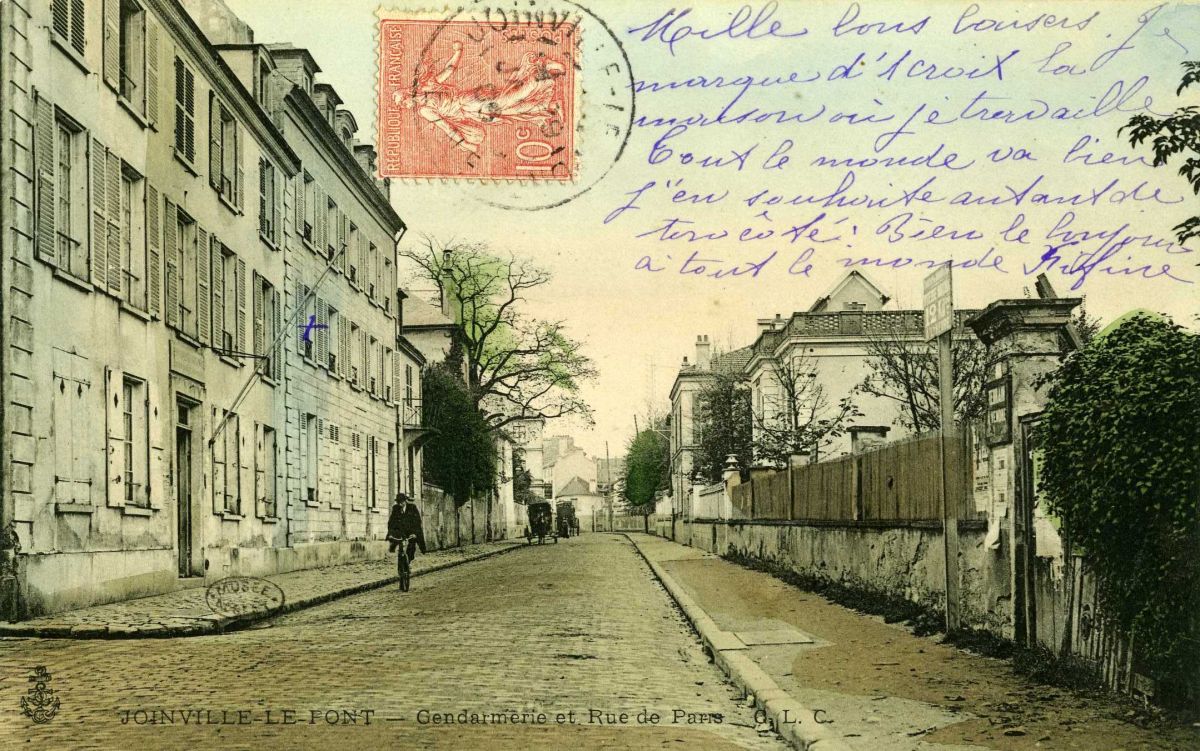 Mille bons baisers. Je
marque d'1 croix la
maison où je travaille
Tout le monde va bien
j'en souhaite autant de
ton côté. Bien le bonjour
à tout le monde
RÉPUBLIQUE FRANÇAISE
10c
MUSÉE
JOINVILLE-LE-PONT — Gendarmerie et Rue de Paris C. L. C.